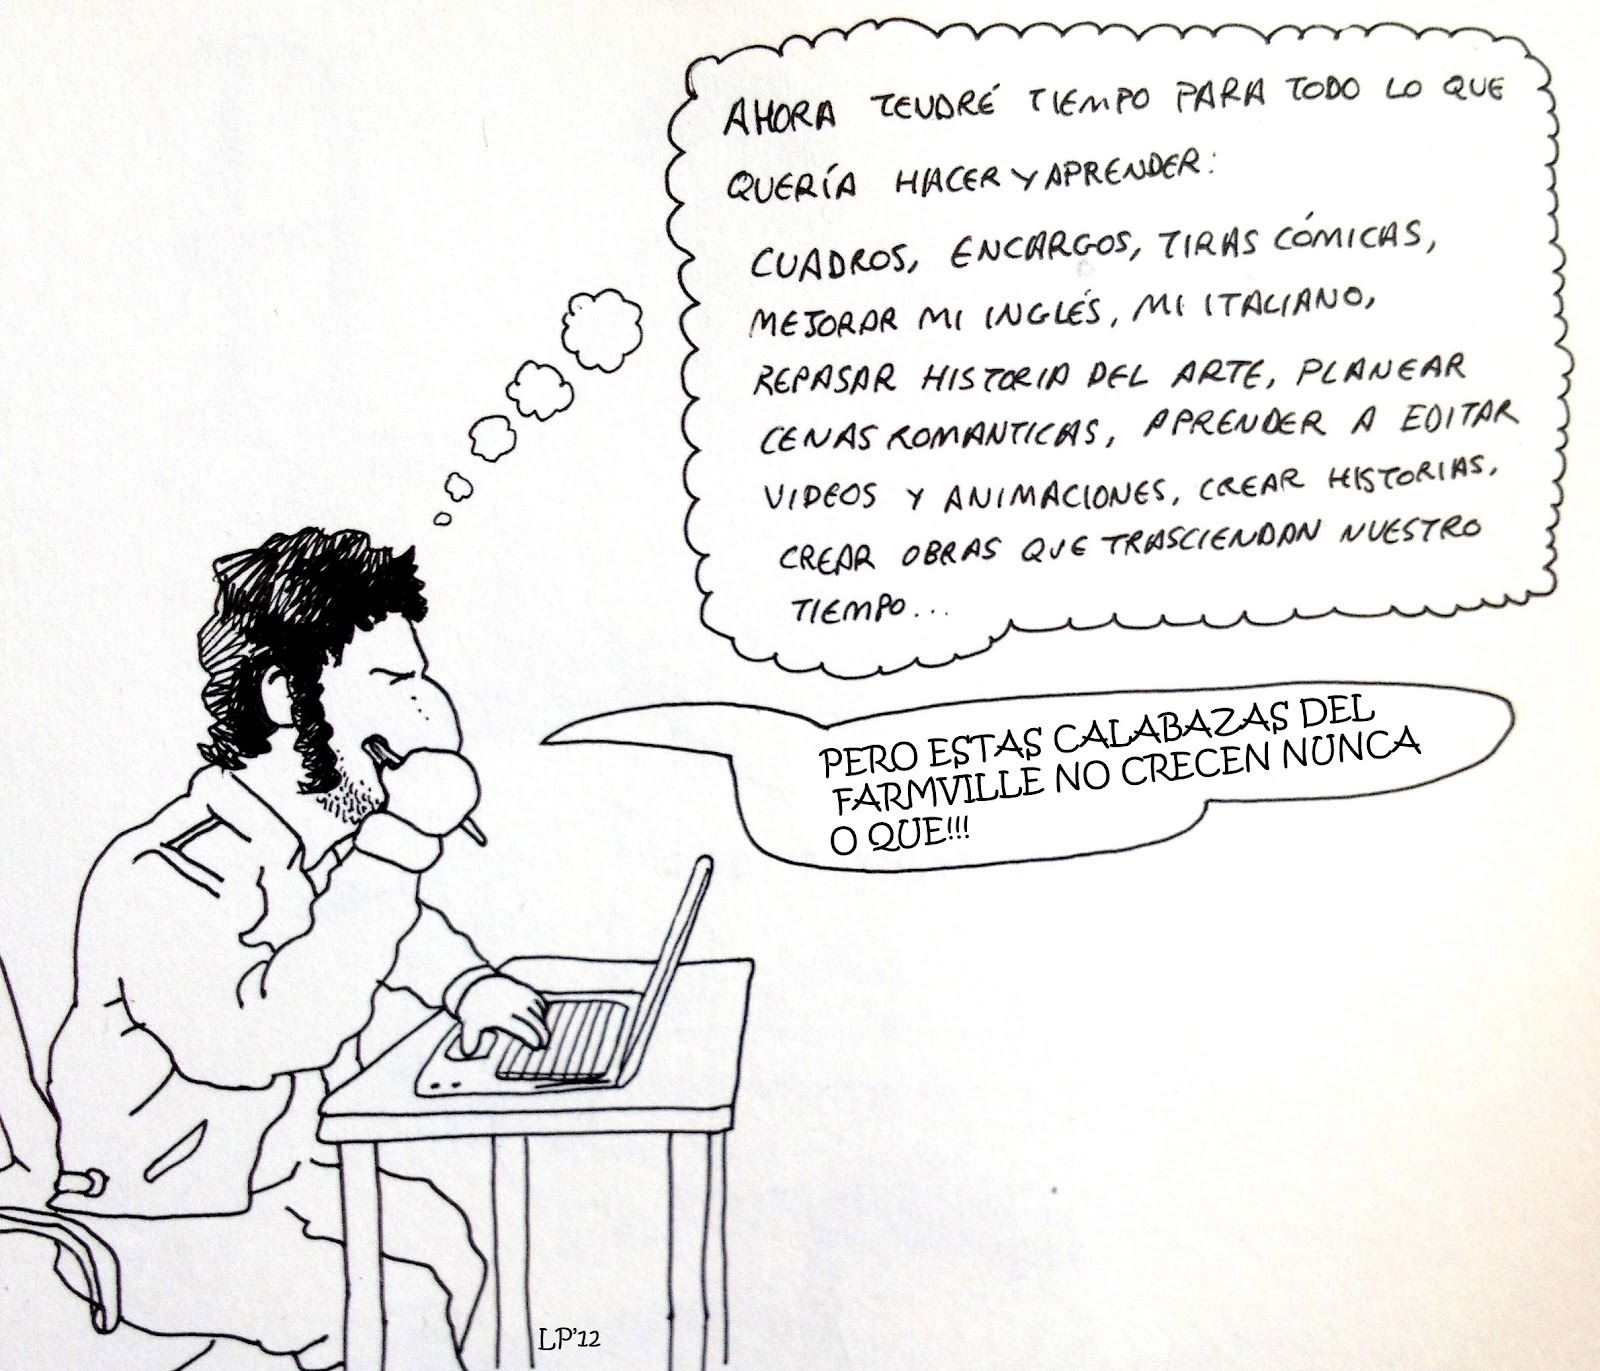 AHORA TENDRÉ TIEMPO PARA TODO LO QUE
QUERÍA HACER Y APRENDER:
CUADROS, ENCARGOS, TIRAS CÓMICAS,
MEJORAR MI INGLÉS, MI ITALIANO,
REPASAR HISTORIA DEL ARTE, PLANEAR
CENAS ROMANTICAS, APRENDER A EDITAR
VIDEOS Y ANIMACIONES, CREAR HISTORIAS,
CREAR OBRAS QUE TRASCIENDAN NUESTRO
TIEMPO...
PERO ESTAS CALABAZAS DEL
FARMVILLE NO CRECEN NUNCA
O QUE!!!
LP'12